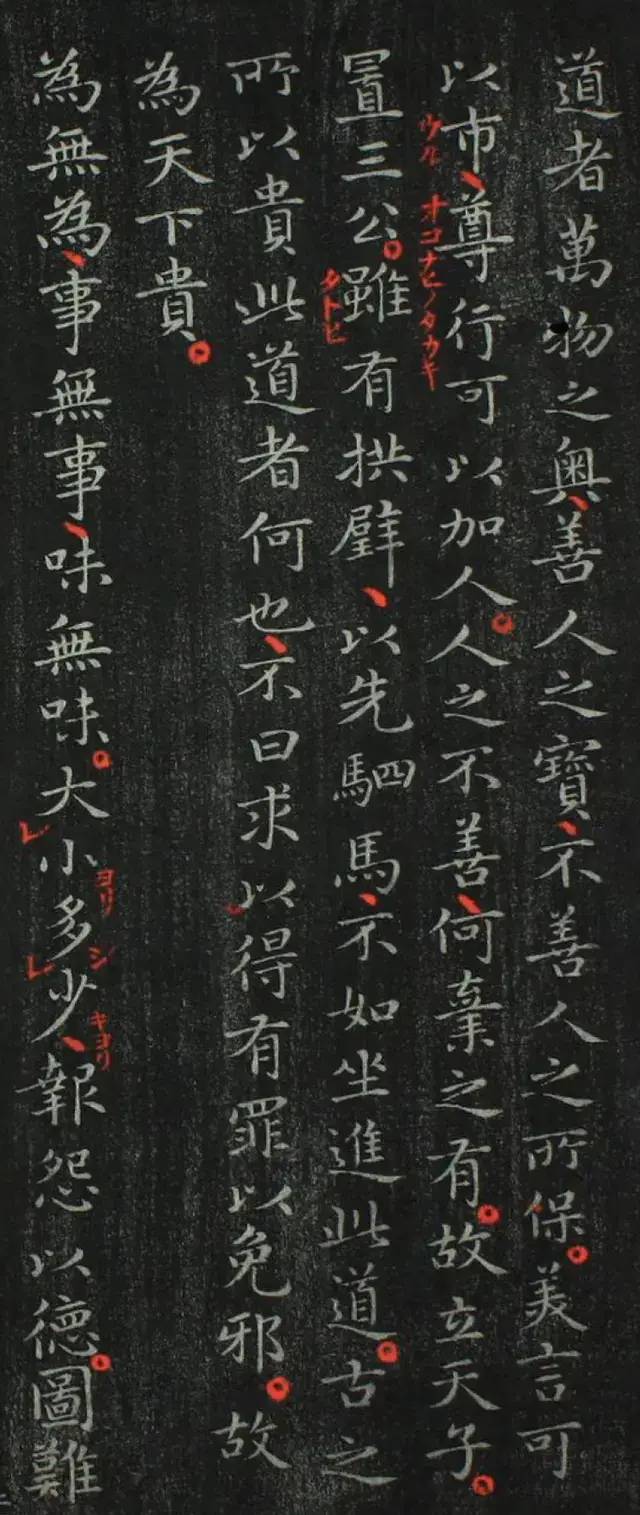 道者萬物之奧、善人之寶、不善人之所保。美言可
以市、尊行可以加人。人之不善、何棄之有。故立天子。
ウル オコナヒノタカキ
置三公。雖有拱璧、以先駟馬、不如坐進此道。古之
タトヒ
所以貴此道者何也、不曰求以得有罪以免邪。故
為天下貴。
為無為、事無事、味無味。大レ小多レ少、報怨以德。圖難
ヨリ シ キヨリ